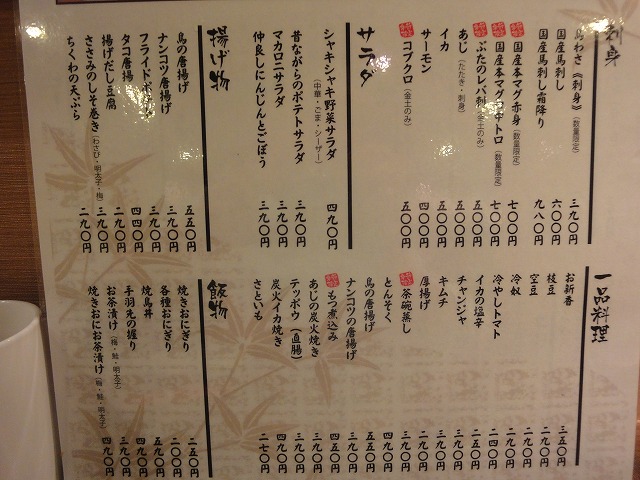 刺身
鳥わさ《刺身》(数量限定) 三九〇円
国産馬刺し 六〇〇円
国産馬刺し霜降り 九八〇円
国産本マグロ赤身(数量限定) 七〇〇円
国産本マグロ中トロ(数量限定) 七〇〇円
ぶたのレバ刺(金土のみ) 五〇〇円
あじ(たたき・刺身) 五〇〇円
イカ 五〇〇円
サーモン 四〇〇円
コブクロ(金土のみ) 五〇〇円
サラダ
シャキシャキ野菜サラダ(中華・ごま・シーザー) 四九〇円
昔ながらのポテトサラダ 三九〇円
マカロニサラダ 三九〇円
仲良しにんじんとごぼう 三九〇円
揚げ物
鳥の唐揚げ 五五〇円
ナンコツ唐揚げ 三九〇円
フライドポテト 三九〇円
タコ唐揚 四四〇円
揚げだし豆腐 二九〇円
ささみのしそ巻き(わさび・明太子・梅) 三九〇円
ちくわの天ぷら 二九〇円
一品料理
お新香 三五〇円
枝豆 二九〇円
空豆 二九〇円
冷奴 二九〇円
冷やしトマト 二九〇円
イカの塩辛 二四〇円
チャンジャ 二九〇円
キムチ 二九〇円
厚揚げ 二九〇円
茶碗蒸し 三九〇円
とんそく 四九〇円
鳥の唐揚げ 五五〇円
ナンコツの唐揚げ 三九〇円
もつ煮込み 四五〇円
あじの炭火焼き 三九〇円
テッポウ(直腸) 三九〇円
炭火イカ焼き 四九〇円
さといも 二七〇円
飯物
焼きおにぎり 二五〇円
各種おにぎり 二〇〇円
焼鳥丼 五九〇円
手羽先の握り 四九〇円
お茶漬け(梅・鮭・明太子) 三九〇円
焼きおにお茶漬け(梅・鮭・明太子) 四九〇円